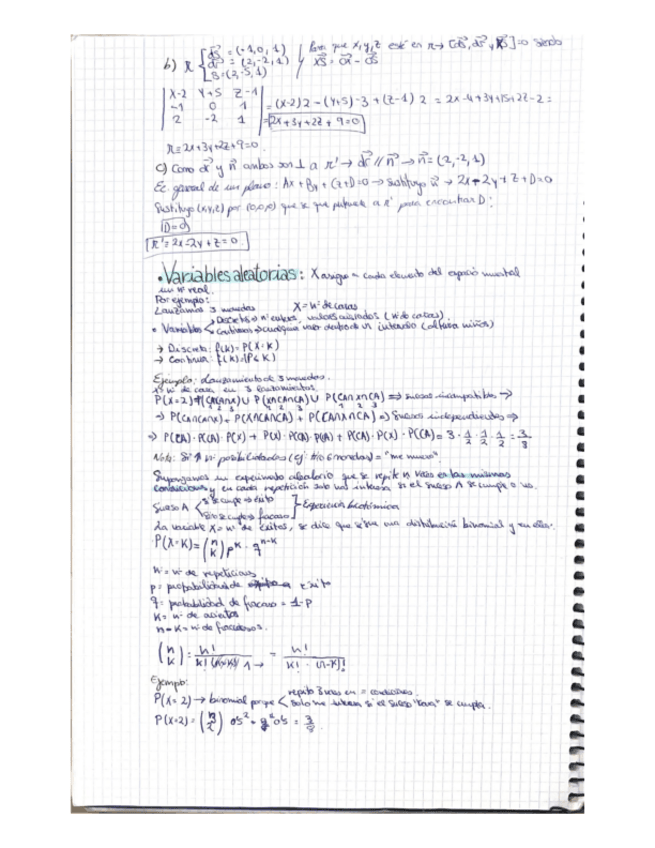 b) π { ds = (-1,0,1) / Para que x,y,z esté en π → [ds, dr, XS]=0 siendo
dr = (2,-2,1)
S = (2,-5,1)
| x-2 y+5 z-1 |
| -1 0 1 | = (x-2)2 - (y+5)·-3 + (z-1) 2 = 2x-4+3y+15+2z-2 =
| 2 -2 1 | = 2x+3y+2z+9=0
π = 2x+3y+2z+9=0.
c) Como dr y n ambos son ⊥ a π' → dr // n → n = (2,-2,1)
Ec general de un plano: Ax + By + Cz+D=0 → sustituyo n → 2x-2y+z+D=0
Sustituyo (x,y,z) por (0,0,0) que se que pertenece a π' para encontrar D:
D=0
π' = 2x-2y+z=0.
• Variables aleatorias: X asigna a cada elemento del espacio muestral
un nº real.
Por ejemplo:
Lanzamos 3 monedas X = nº de caras
• Variables < Discreta → nº enteros, valores aislados (nº de caras)
Continua → cualquier valor dentro de un intervalo (altura niños)
→ Discreta: f(k) = P(X=K)
→ Continua: f(k) = P(≤K)
Ejemplo: Lanzamiento de 3 monedas.
X = nº de caras en 3 lanzamientos
P(X=2) = P(C∩C∩X) ∪ P(X∩C∩C) ∪ P(C∩X∩C) ⇒ sucesos incompatibles →
⇒ P(C∩C∩X) + P(X∩C∩C) + P(C∩X∩C) ⇒ Sucesos independientes ⇒
⇒ P(C)·P(C)·P(X) + P(X)·P(C)·P(C) + P(C)·P(X)·P(C) = 3·1/2·1/2·1/2 = 3/8
Nota: Si ↑ nº posibilidades (ej: tiro 6 monedas) = "me muero"
Supongamos un experimento aleatorio que se repite n veces en las mismas
condiciones y en cada repetición solo nos interesa si el suceso A se cumple o no.
Suceso A < si se cumple → éxito
si no se cumple → fracaso } Experiencia dicotómica
La variable X = nº de éxitos, se dice que sigue una distribución binomial y en ella:
P(X=K) = (n K) p^K · q^n-K
n = nº de repeticiones
p = probabilidad de éxito
q = probabilidad de fracaso = 1-p
K = nº de aciertos
n-K = nº de fracasos.
(n K) = n! / K! (n-K)! = n! / K! · (n-K)!
Ejemplo:
P(X=2) → binomial porque < repito 3 veces en = condiciones.
solo me interesa si el suceso "cara" se cumple.
P(X=2) = (3 2) 0'5² · 0'5 = 3/8.